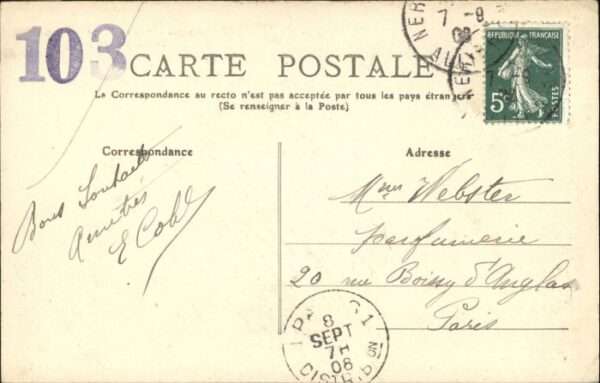 103
CARTE POSTALE
La Correspondance au recto n'est pas acceptée par tous les pays étrangers
(Se renseigner à la Poste)
Correspondance
Adresse
Bons Souhaits
Amitiés
E Cob
Mme Webster
parfumerie
20 rue Boissy d'Anglas
Paris
REPUBLIQUE FRANÇAISE
5c
POSTES
NER
7 - 9
08
PARIS 1
8
SEPT
7H
08
DISTRIB